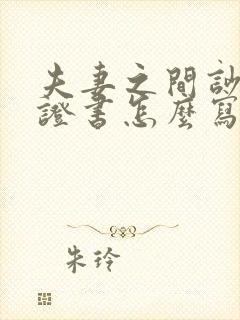 夫妻之間
證書怎麼寫
朱玲